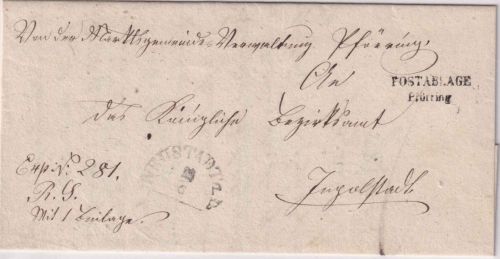 Von der Marktsgemeinde-Verwaltung Pförring,
An
POSTABLAGE
Pförring
das Königliche Bezirksamt
NEUSTADT
Exp. Nº 281.
R. S.
Mit 1 Beilage.
Ingolstadt